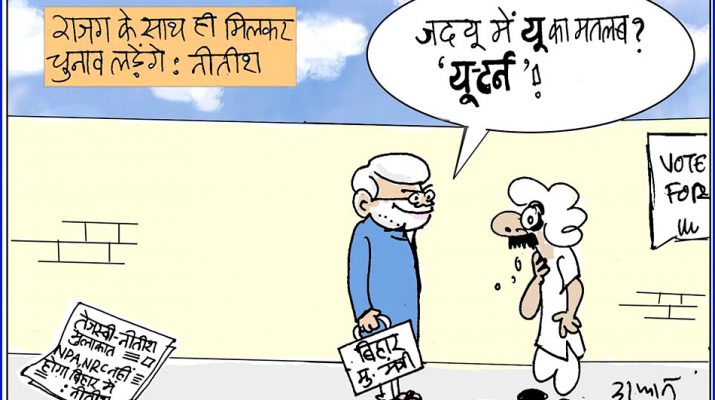 राजग के साथ ही मिलकर
चुनाव लड़ेंगे : नीतीश
जदयू में यू का मतलब?
'यू-टर्न'!
VOTE
FOR
तेजस्वी-नीतीश
मुलाकात
NPA, NRC नहीं
होगा बिहार में
: नीतीश
बिहार
मु. मंत्री